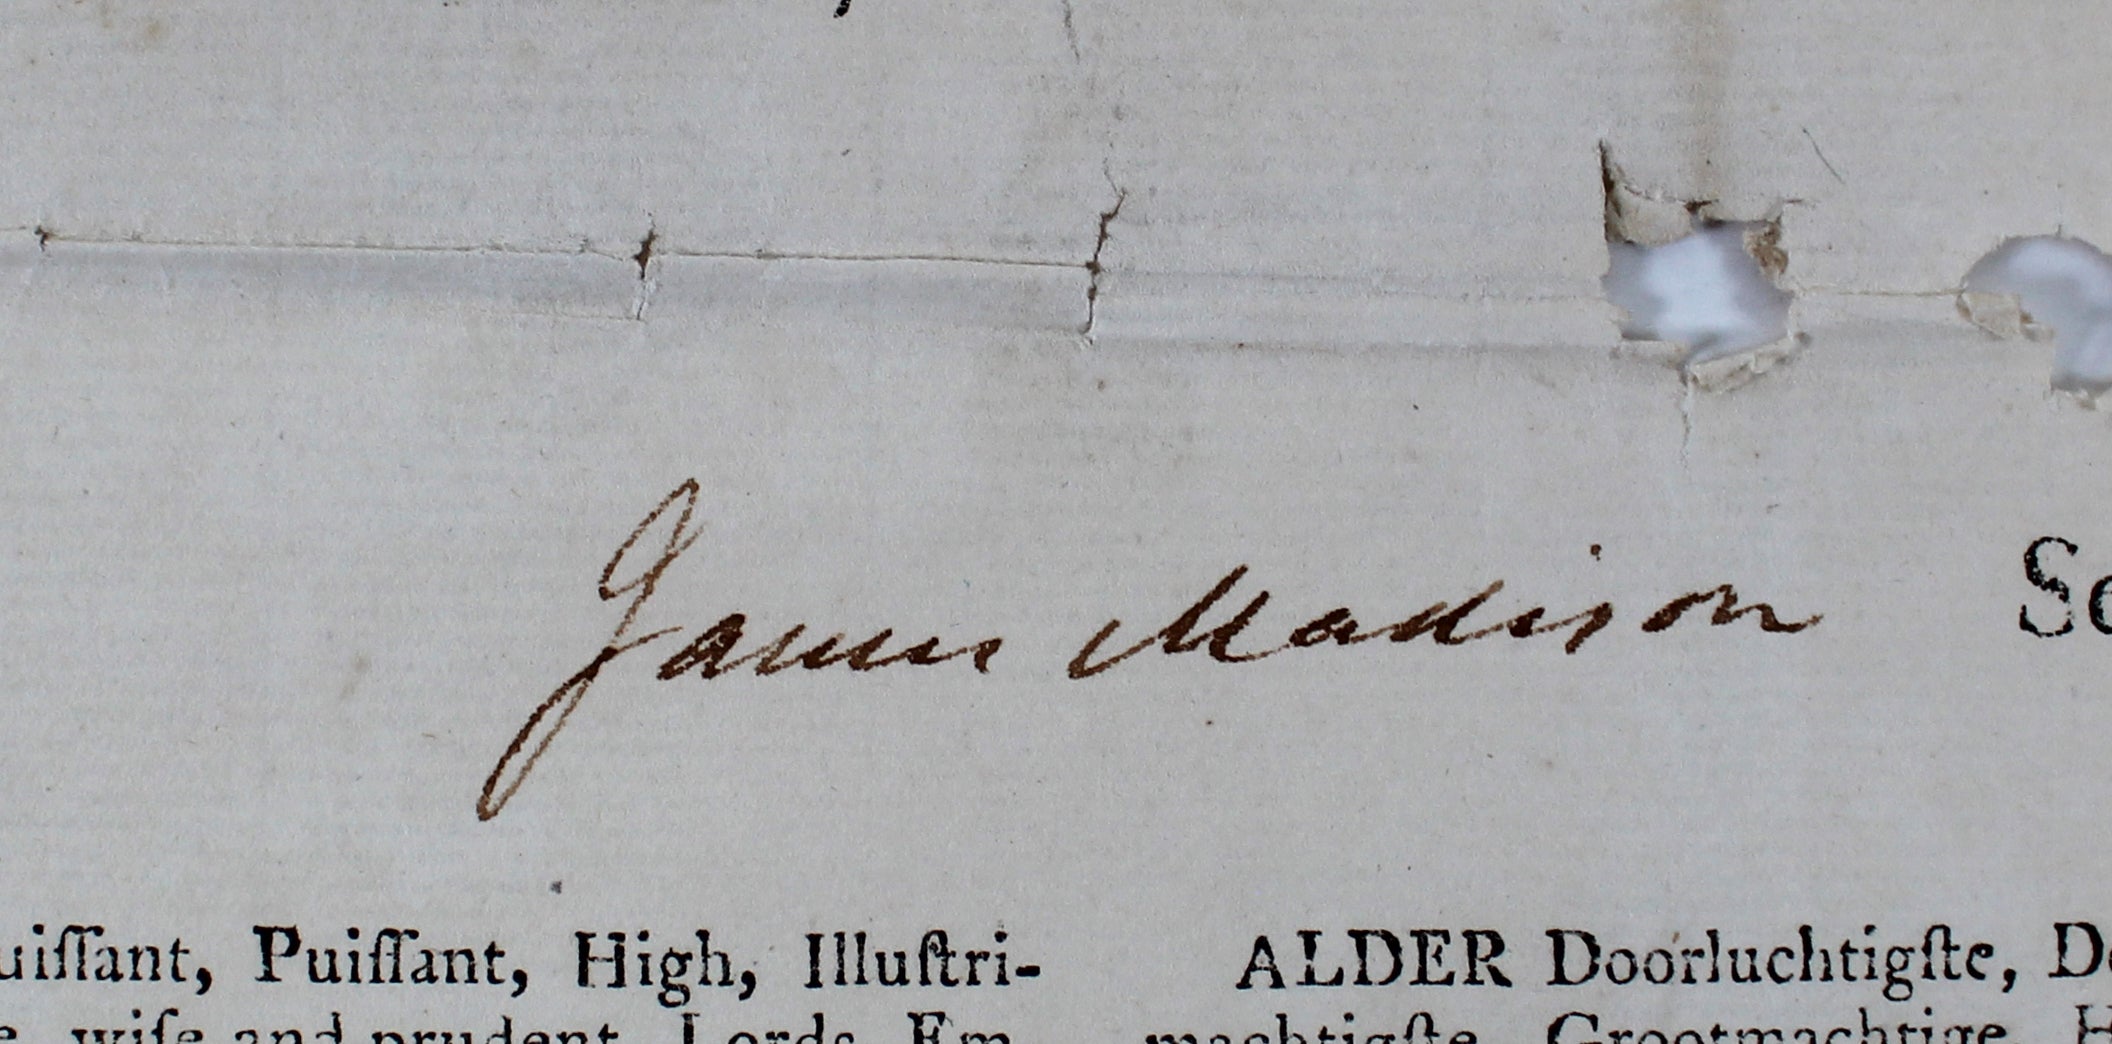 James Madison
Puiſſant, High, Illuſtri-
wiſe and prudent Lords, Em
ALDER Doorluchtigſte,
machtigſte, Grootmachtige,